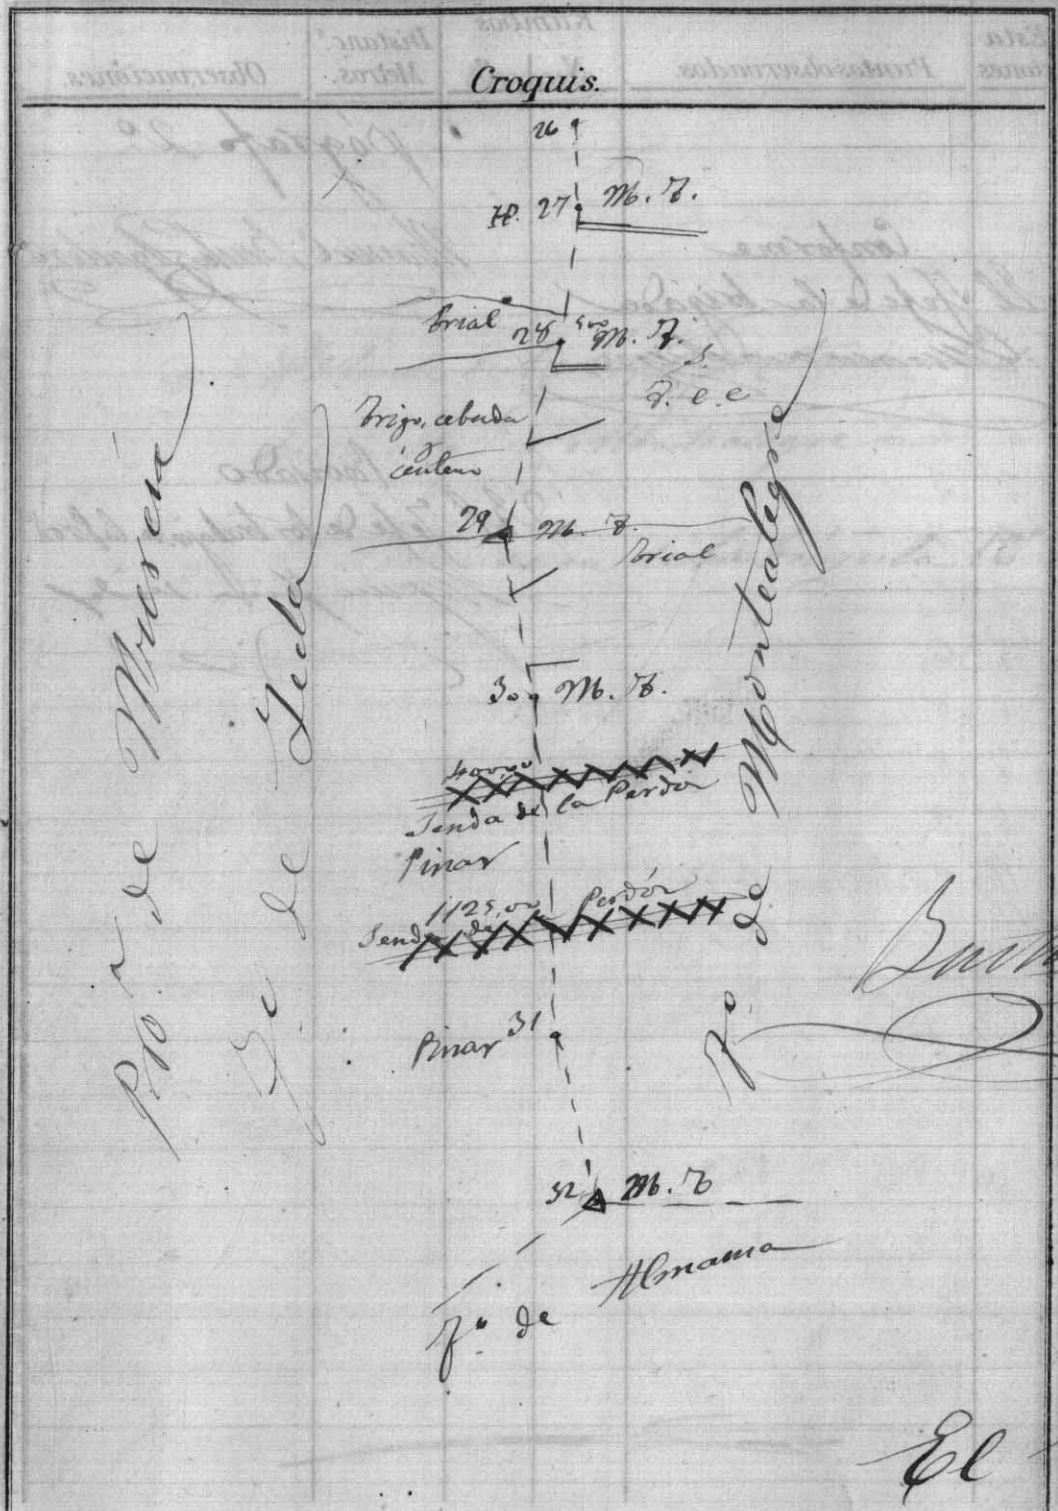 Croquis.
26
27 M. T.
Erial 28 M. T.
T. c. e
Trigo, cebada
y
centeno
29 M. T.
Erial
30 M. T.
400,00
Senda de la Perdiz
Pinar
1125,00
Senda de Perdiz
Pinar 31
32 M. T
To. de Almansa
Pro.a de Murcia
To. de Yecla
To. de Montealegre
El